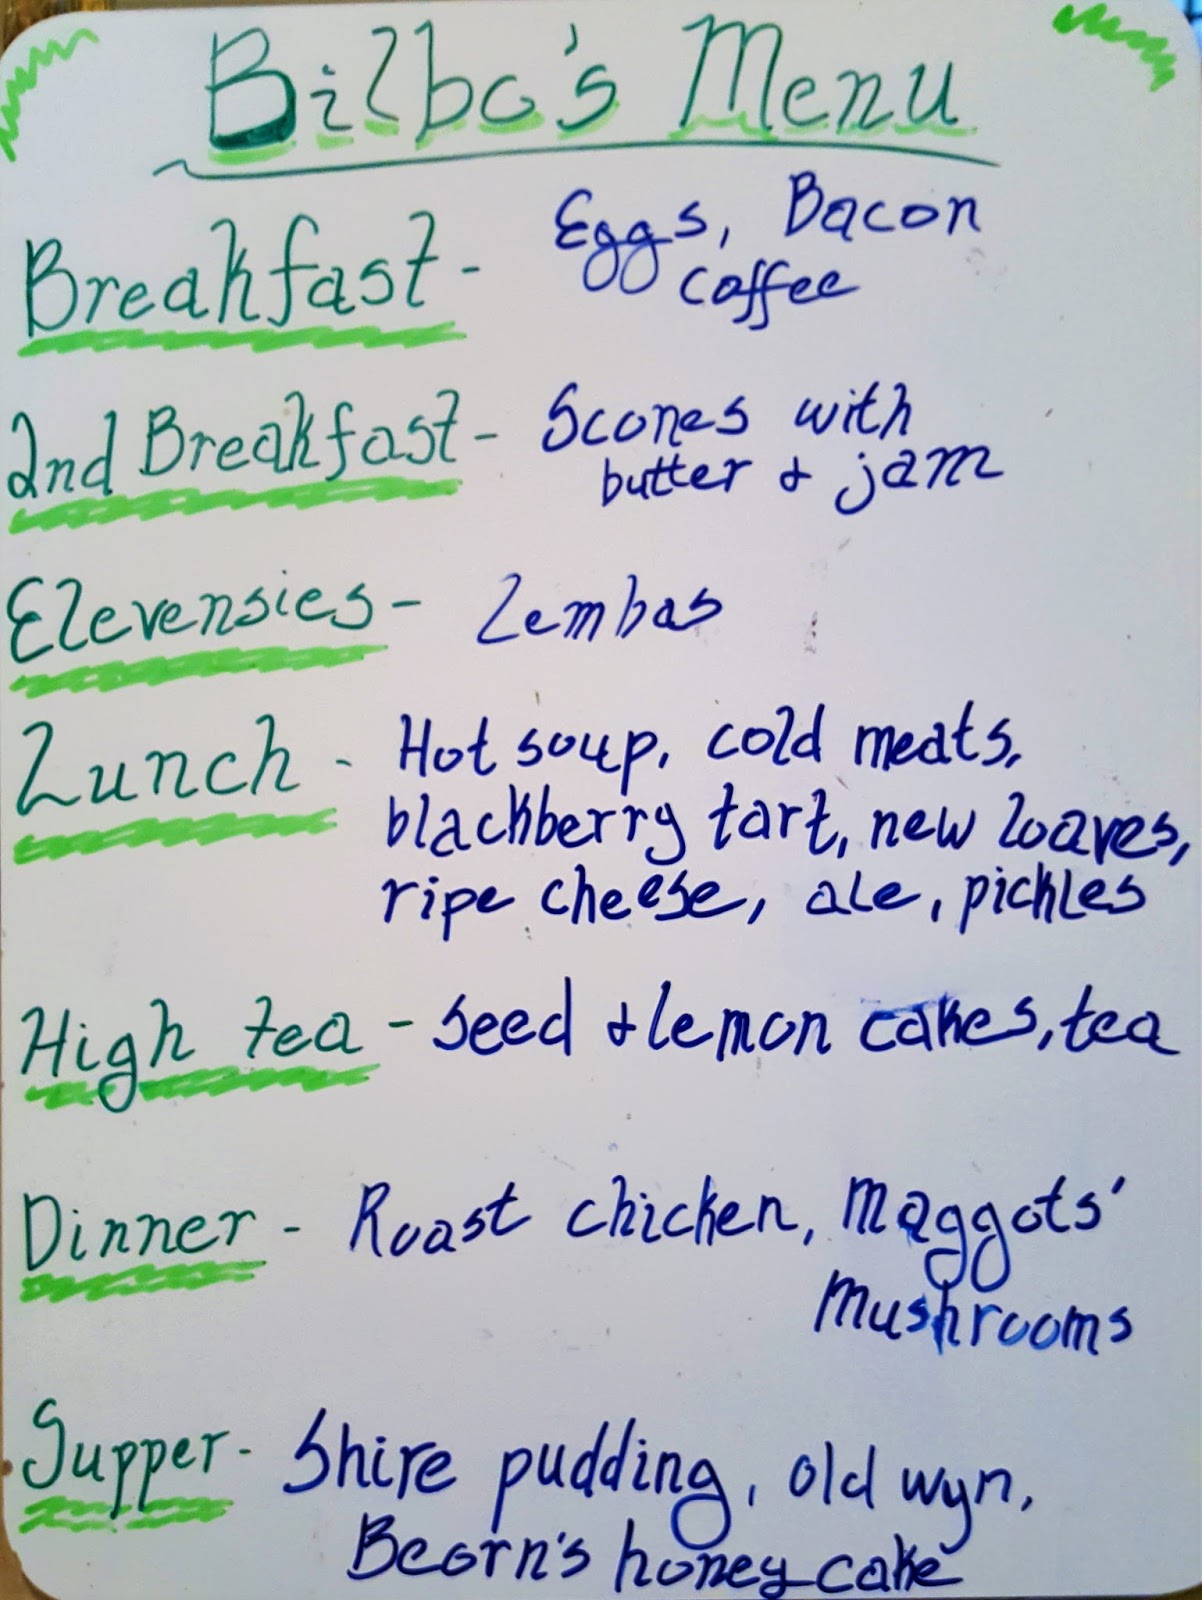 Bilbo's Menu
Breakfast - Eggs, Bacon
coffee
2nd Breakfast - Scones with
butter & jam
Elevensies - Lembas
Lunch - Hot soup, cold meats,
blackberry tart, new loaves,
ripe cheese, ale, pickles
High tea - Seed & lemon cakes, tea
Dinner - Roast chicken, Maggots'
Mushrooms
Supper - Shire pudding, old wyn,
Beorn's honey cake